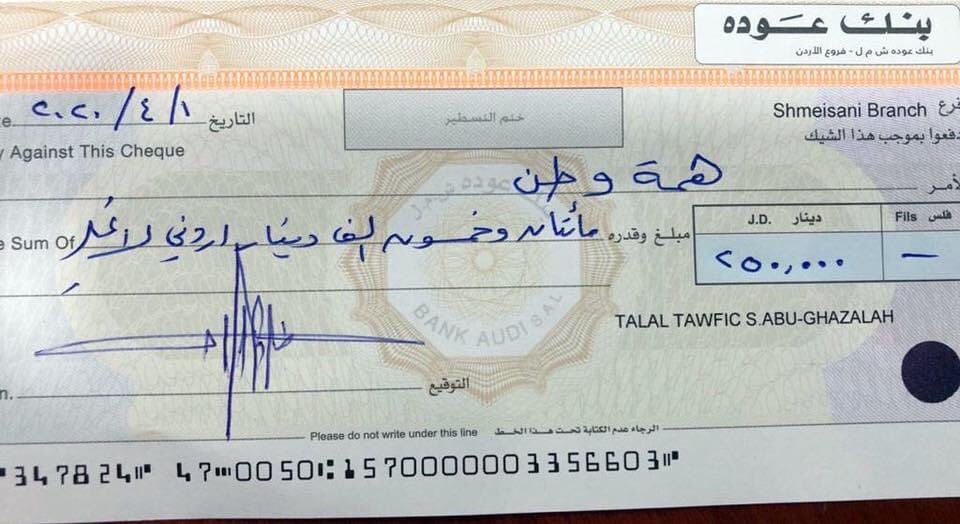 بنك عوده
بنك عوده ش م ل - فروع الأردن
التاريخ ٢٠٢٠/٤/١
ختم التسطير
Shmeisani Branch فرع
Against This Cheque
دفعوا بموجب هذا الشيك
لأمر همة وطن
Sum Of مبلغ وقدره مأتان وخمسون الف دينار اردني لا غير
J.D. دينار Fils فلس
٢٥٠,٠٠٠ —
BANK AUDI S.A.L
TALAL TAWFIC S.ABU-GHAZALAH
التوقيع
Please do not write under this line الرجاء عدم الكتابة تحت هذا الخط
347824 47 0050 1570000003356603